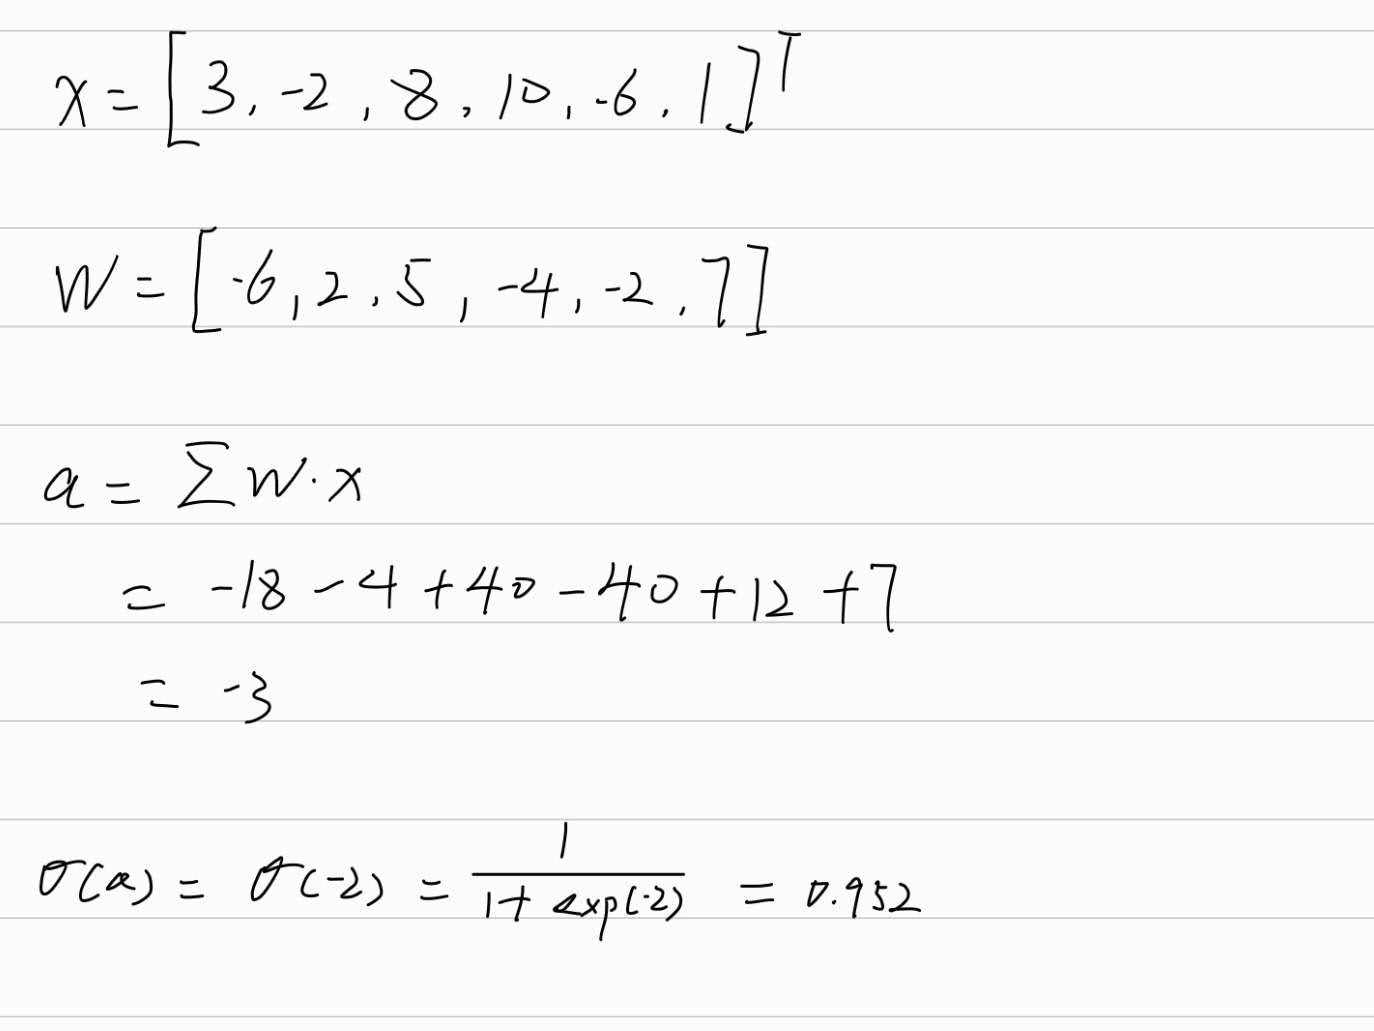 x = [3, -2, 8, 10, -6, 1]ᵀ
W = [-6, 2, 5, -4, -2, 7]
a = ∑ w · x
= -18 - 4 + 40 - 40 + 12 + 7
= -3
σ(a) = σ(-2) = 1/(1 + exp(-2)) = 0.952